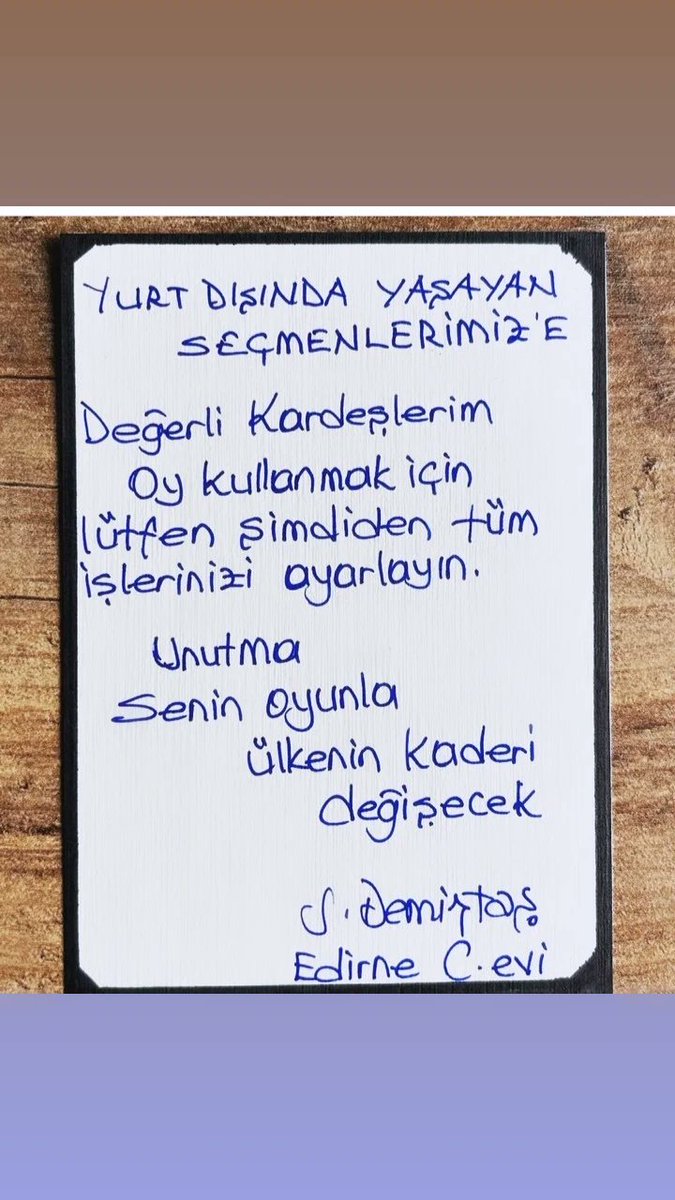 YURT DIŞINDA YAŞAYAN
SEÇMENLERİMİZ'E
Değerli Kardeşlerim
Oy kullanmak için
lütfen şimdiden tüm
işlerinizi ayarlayın.
Unutma
Senin oyunla
ülkenin kaderi
değişecek
S. Demirtaş
Edirne C.evi